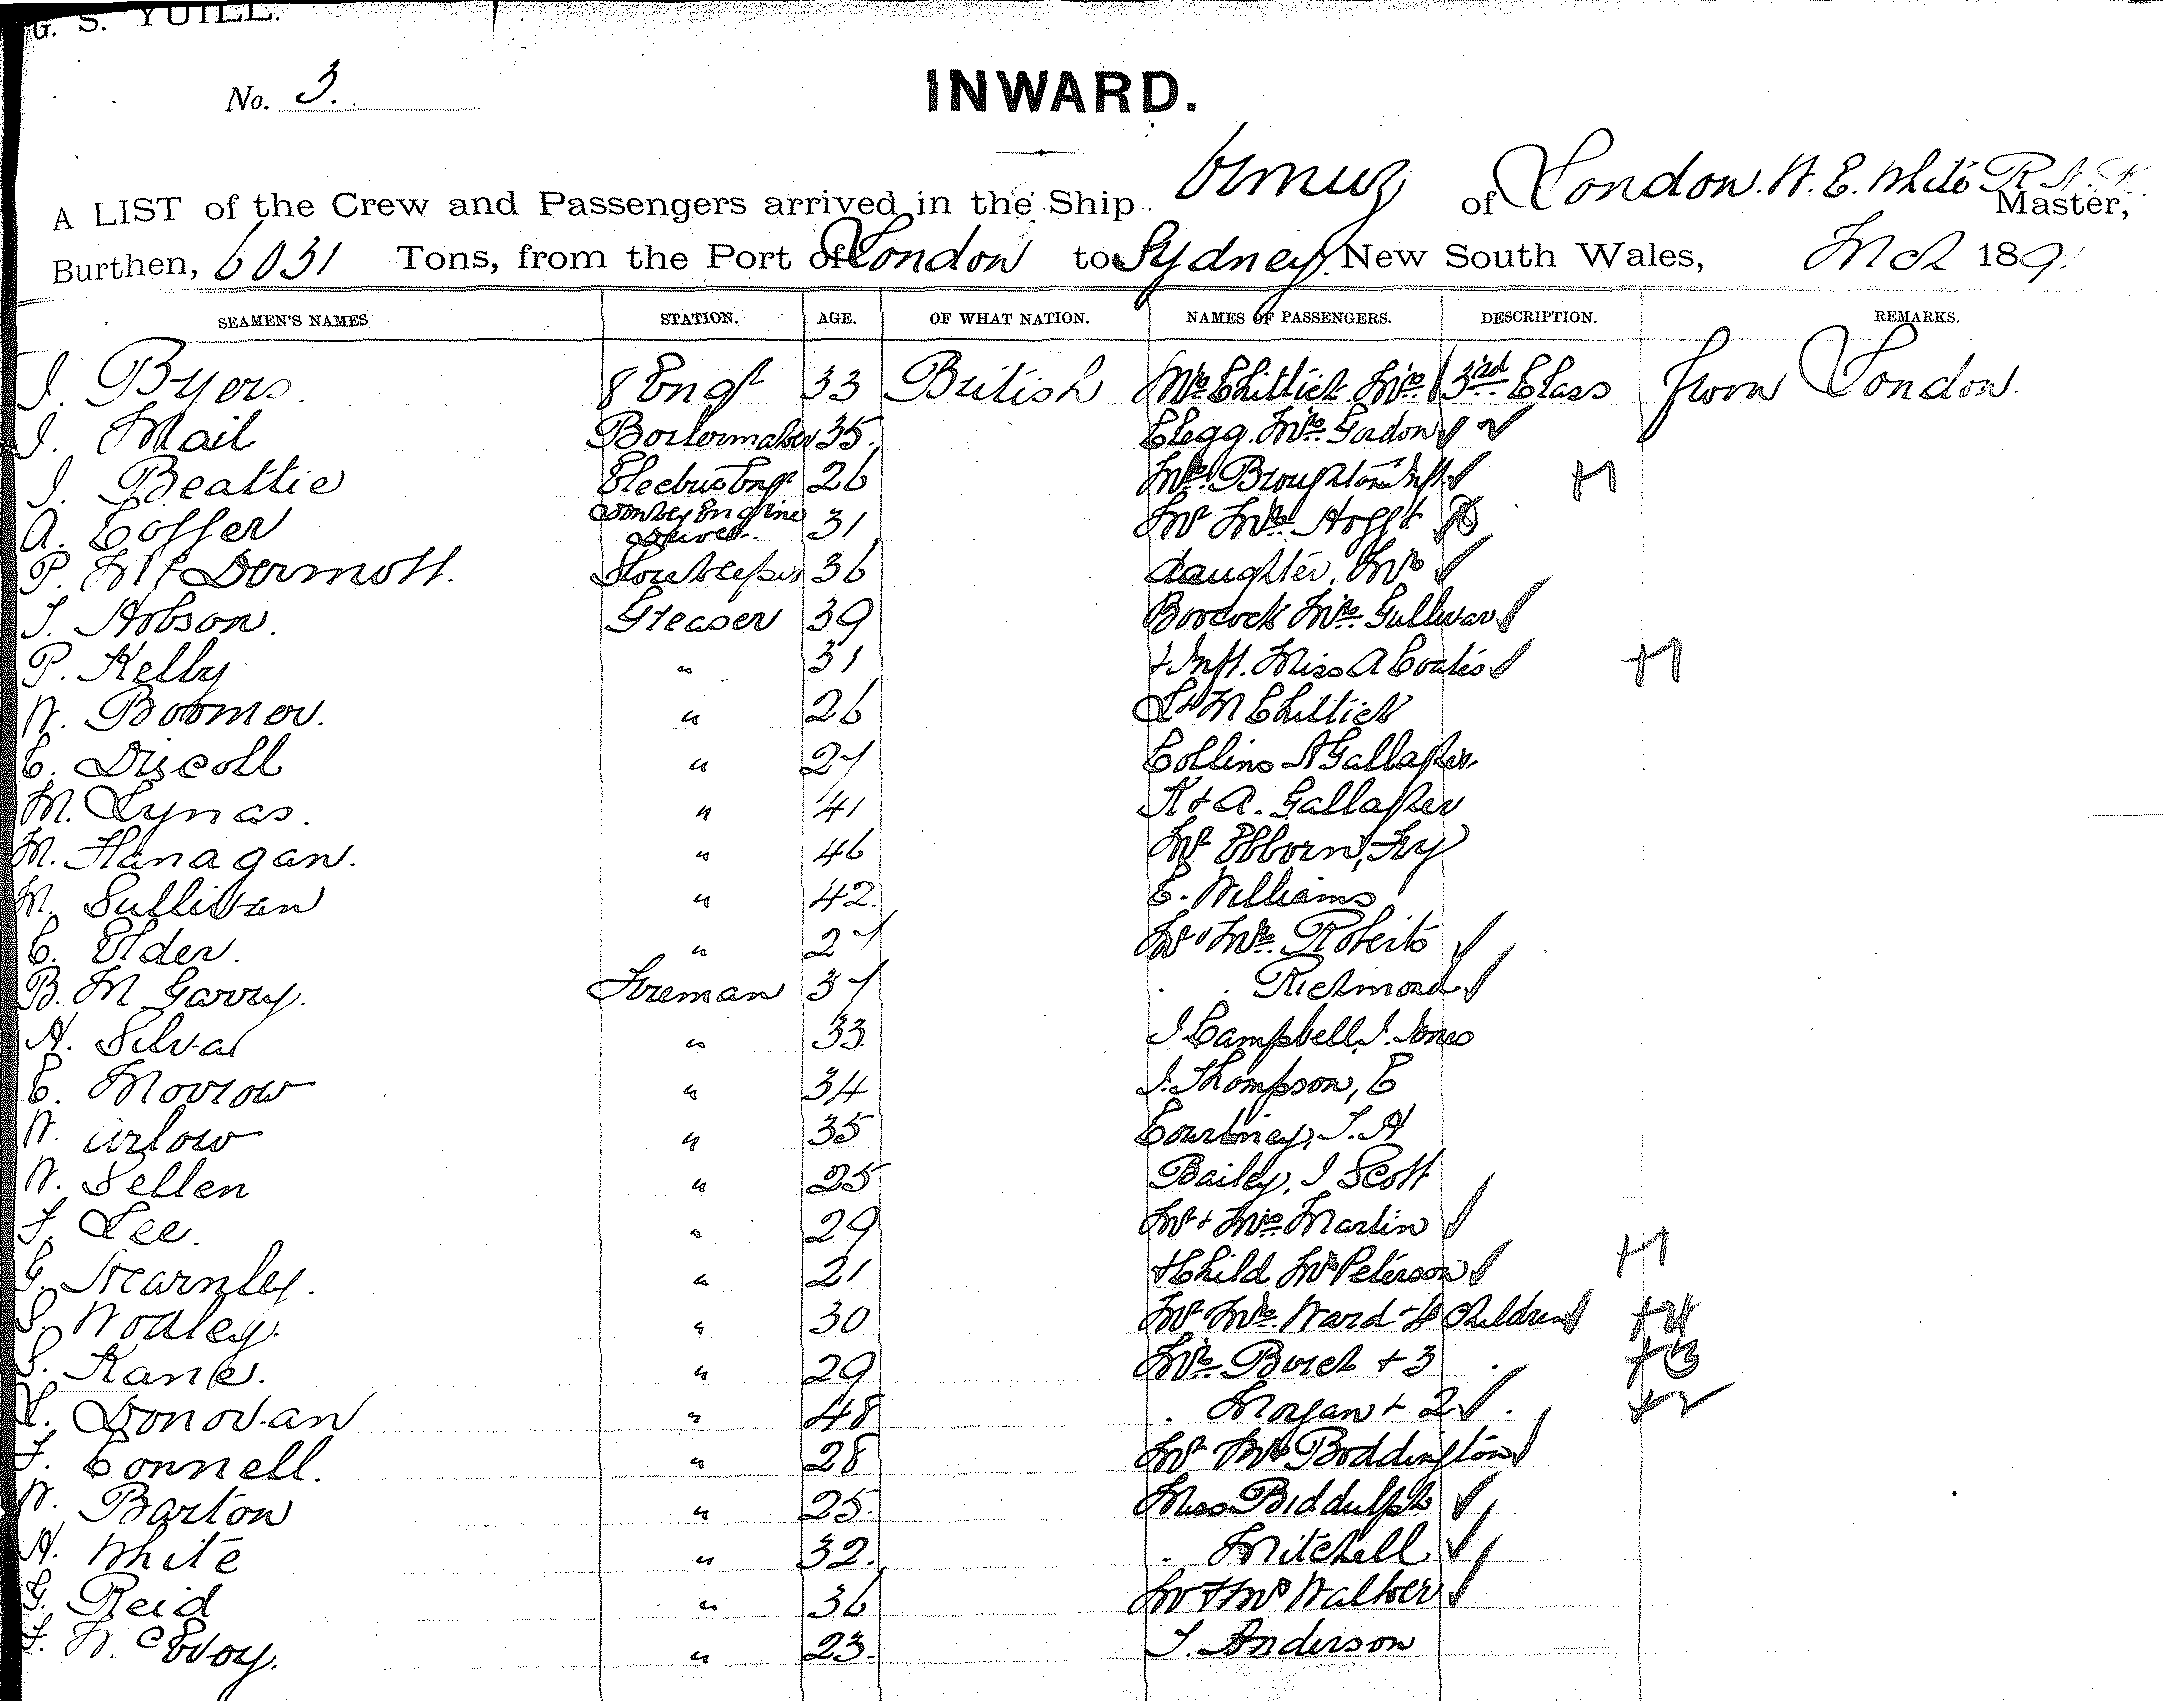 G. S. YUILL.
No. 3.
INWARD.
A LIST of the Crew and Passengers arrived in the Ship Ormuz of London. W. E. White R.N.R. Master,
Burthen, 6031 Tons, from the Port of London to Sydney New South Wales, 189
SEAMEN'S NAMES STATION. AGE. OF WHAT NATION. NAMES OF PASSENGERS. DESCRIPTION. REMARKS.
J. Byers. 8 Engr 33 British Mrs Chittick Mrs 3rd Class from London.
J. Mail Boilermaker 35. Clegg. Mrs Gordon
J. Beattie Electric Engr 26 Mrs Broughton Inft + 1
A. Coffer Donkey Engine Driver. 31 Mr Mrs Hogg +
P. McDermott. Storekeeper 36 daughter, Mrs
T. Hobson. Greaser 39 Borcock Mrs Gullivan
P. Kelly " 31 + Inft. Miss A Coates + 1
W. Boomer. " 26 L + M Chittick
C. Driscoll " 27 Collins A Gallaher
M. Lynas. " 41 K + A. Gallaher
M. Flanagan. " 46 Mr Ebborn, Fry
M. Sullivan " 42. E. Williams
C. Elder. " 27 Mr Mrs Roberts
B. McGarry. Fireman 37 . . Richmond
H. Silva " 33 J Campbell, J. Jones
C. Morrow " 34 J. Thompson, C
W. Urlow " 35 Courtney, T. H
W. Sellen " 25 Bailey, J Scott
F. Lee. " 29 Mr + Mrs Martin
G. Kearnley. " 21 + Child Mrs Peterson + 1
S. Wodley. " 30 Mr Mrs Ward + 4 Children + 4
S. Kane. " 29 Mrs Burch + 3 . + 3
T. Donovan " 48 . Morgan + 2 . + 2
T. Connell. " 28 Mr Mrs Boddington
W. Barton " 25. Miss Biddulph
H. White " 32. . Mitchell
G. Reid " 36 Mr + Mrs Walker
J. McEvoy. " 23. T. Anderson